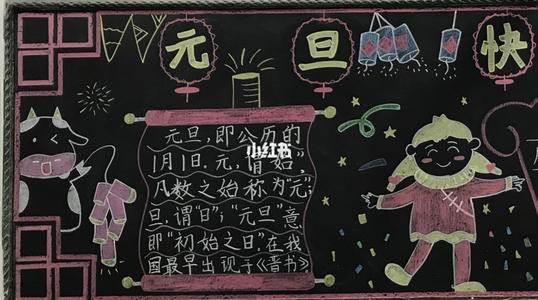 元旦快
元旦,即公历的
1月1日.元,谓"始",
凡数之始称为"元";
旦,谓"日";"元旦"意
即"初始之日".在我
国最早出现于《晋书》
小红书